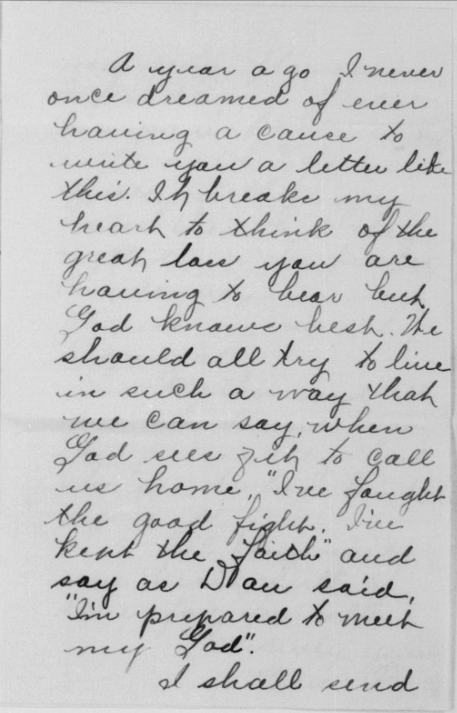 A year ago I never
once dreamed of ever
having a cause to
write you a letter like
this. It breaks my
heart to think of the
great loss you are
having to bear but
God knows best. We
should all try to live
in such a way that
we can say, when
God sees fit to call
us home, "I've fought
the good fight. I've
kept the faith" and
say as Dan said,
"I'm prepared to meet
my God".
I shall send